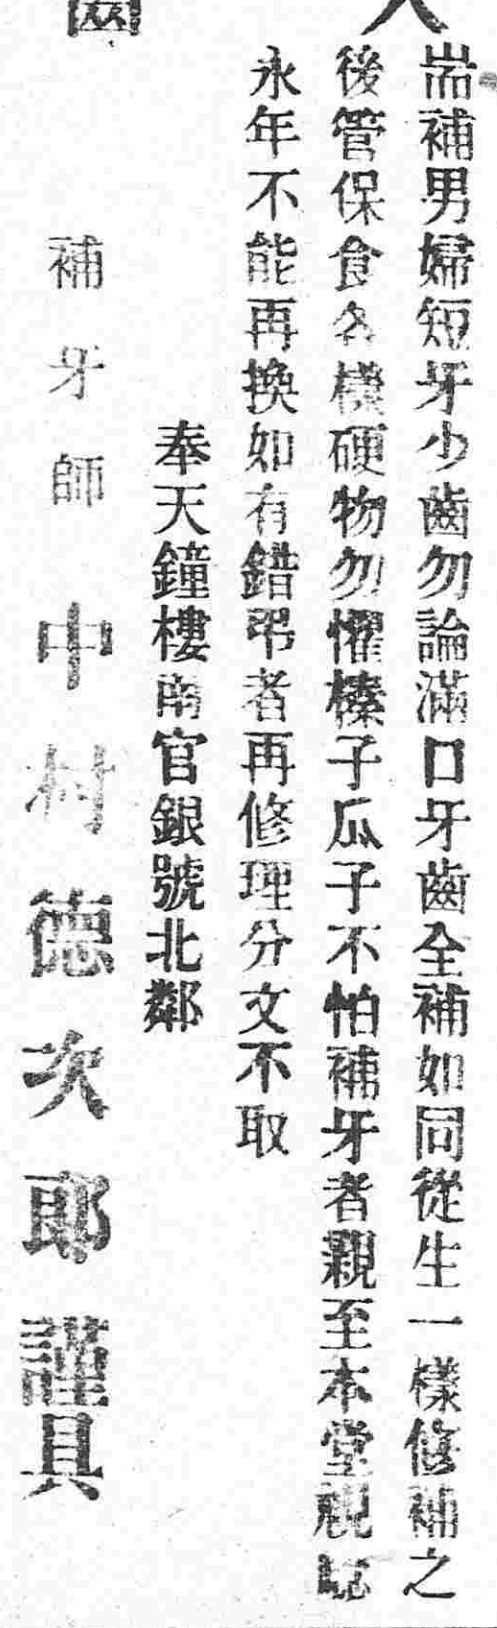 耑補男婦短牙少齒勿論滿口牙齒全補如同從生一樣修補之
後管保食各樣硬物勿懼榛子瓜子不怕補牙者親至本堂親
永年不能再換如有錯弔者再修理分文不取
奉天鐘樓南官銀號北鄰
補牙師 中村德次郎謹具